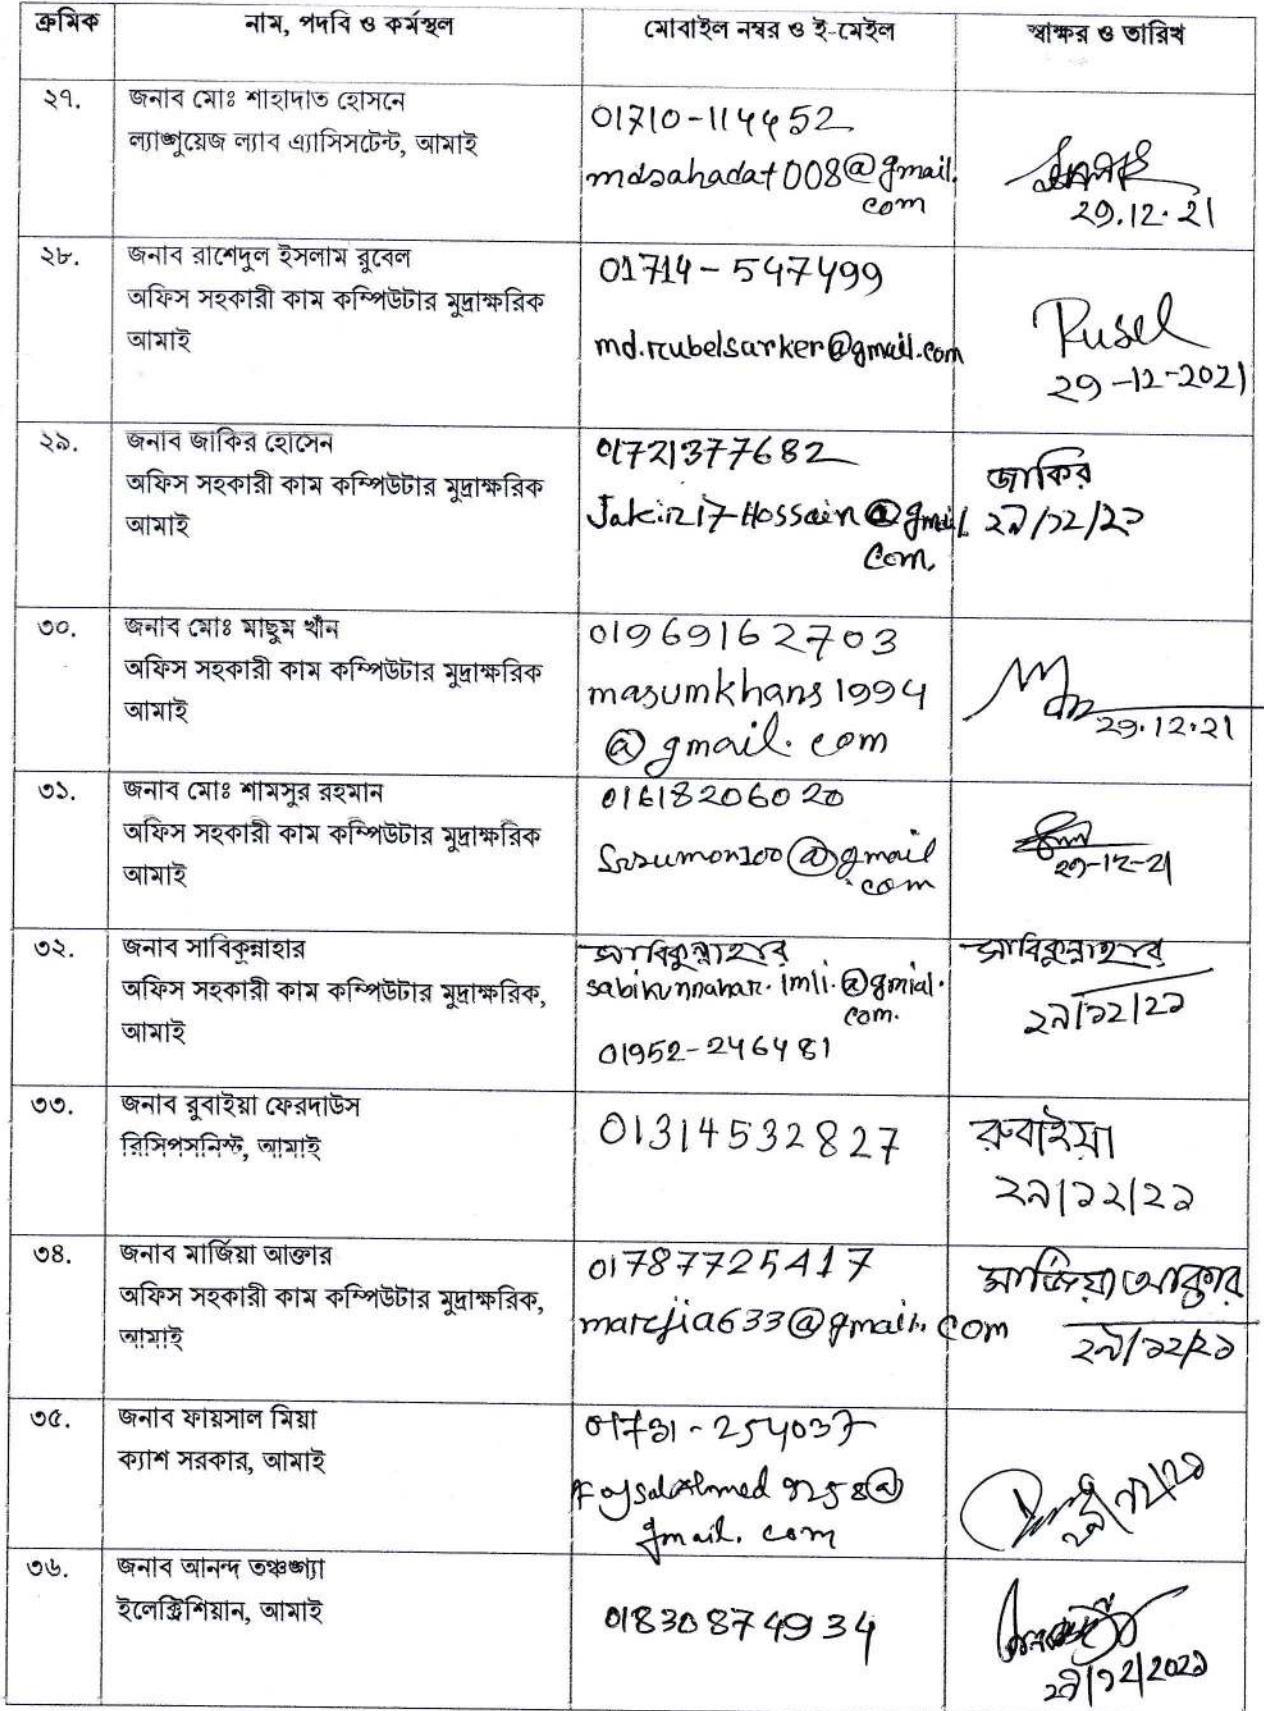 ক্রমিক নাম, পদবি ও কর্মস্থল মোবাইল নম্বর ও ই-মেইল স্বাক্ষর ও তারিখ
২৭.
জনাব মোঃ শাহাদাত হোসনে
ল্যাঙ্গুয়েজ ল্যাব এ্যাসিসটেন্ট, আমাই
01710-114452
mdsahadat008@gmail.
com
29.12.21
২৮.
জনাব রাশেদুল ইসলাম রুবেল
অফিস সহকারী কাম কম্পিউটার মুদ্রাক্ষরিক
আমাই
01714-547499
md.rubelsarker@gmail.com
Rusel
29-12-2021
২৯.
জনাব জাকির হোসেন
অফিস সহকারী কাম কম্পিউটার মুদ্রাক্ষরিক
আমাই
01721377682
Jakir17Hossain@gmail.
com.
জাকির
২৯/১২/২১
৩০.
জনাব মোঃ মাছুম খাঁন
অফিস সহকারী কাম কম্পিউটার মুদ্রাক্ষরিক
আমাই
01969162703
masumkhans1994
@gmail.com
29.12.21
৩১.
জনাব মোঃ শামসুর রহমান
অফিস সহকারী কাম কম্পিউটার মুদ্রাক্ষরিক
আমাই
01618206020
@gmail
.com
29-12-21
৩২.
জনাব সাবিকুন্নাহার
অফিস সহকারী কাম কম্পিউটার মুদ্রাক্ষরিক,
আমাই
সাবিকুন্নাহার
sabikunnahar.imli.@gmial.
com.
01952-246481
সাবিকুন্নাহার
২৯/১২/২১
৩৩.
জনাব রুবাইয়া ফেরদাউস
রিসিপসনিস্ট, আমাই
01314532827
রুবাইয়া
২৯/১২/২১
৩৪.
জনাব মার্জিয়া আক্তার
অফিস সহকারী কাম কম্পিউটার মুদ্রাক্ষরিক,
আমাই
01787725417
marjia633@gmail.com
মার্জিয়া আক্তার
২৯/১২/২১
৩৫.
জনাব ফায়সাল মিয়া
ক্যাশ সরকার, আমাই
01731-254037
FaysalAhmed9258@
gmail.com
২৯/১২/২১
৩৬.
জনাব আনন্দ তঞ্চঙ্গ্যা
ইলেক্ট্রিশিয়ান, আমাই
01830874934
২৯/১২/2021